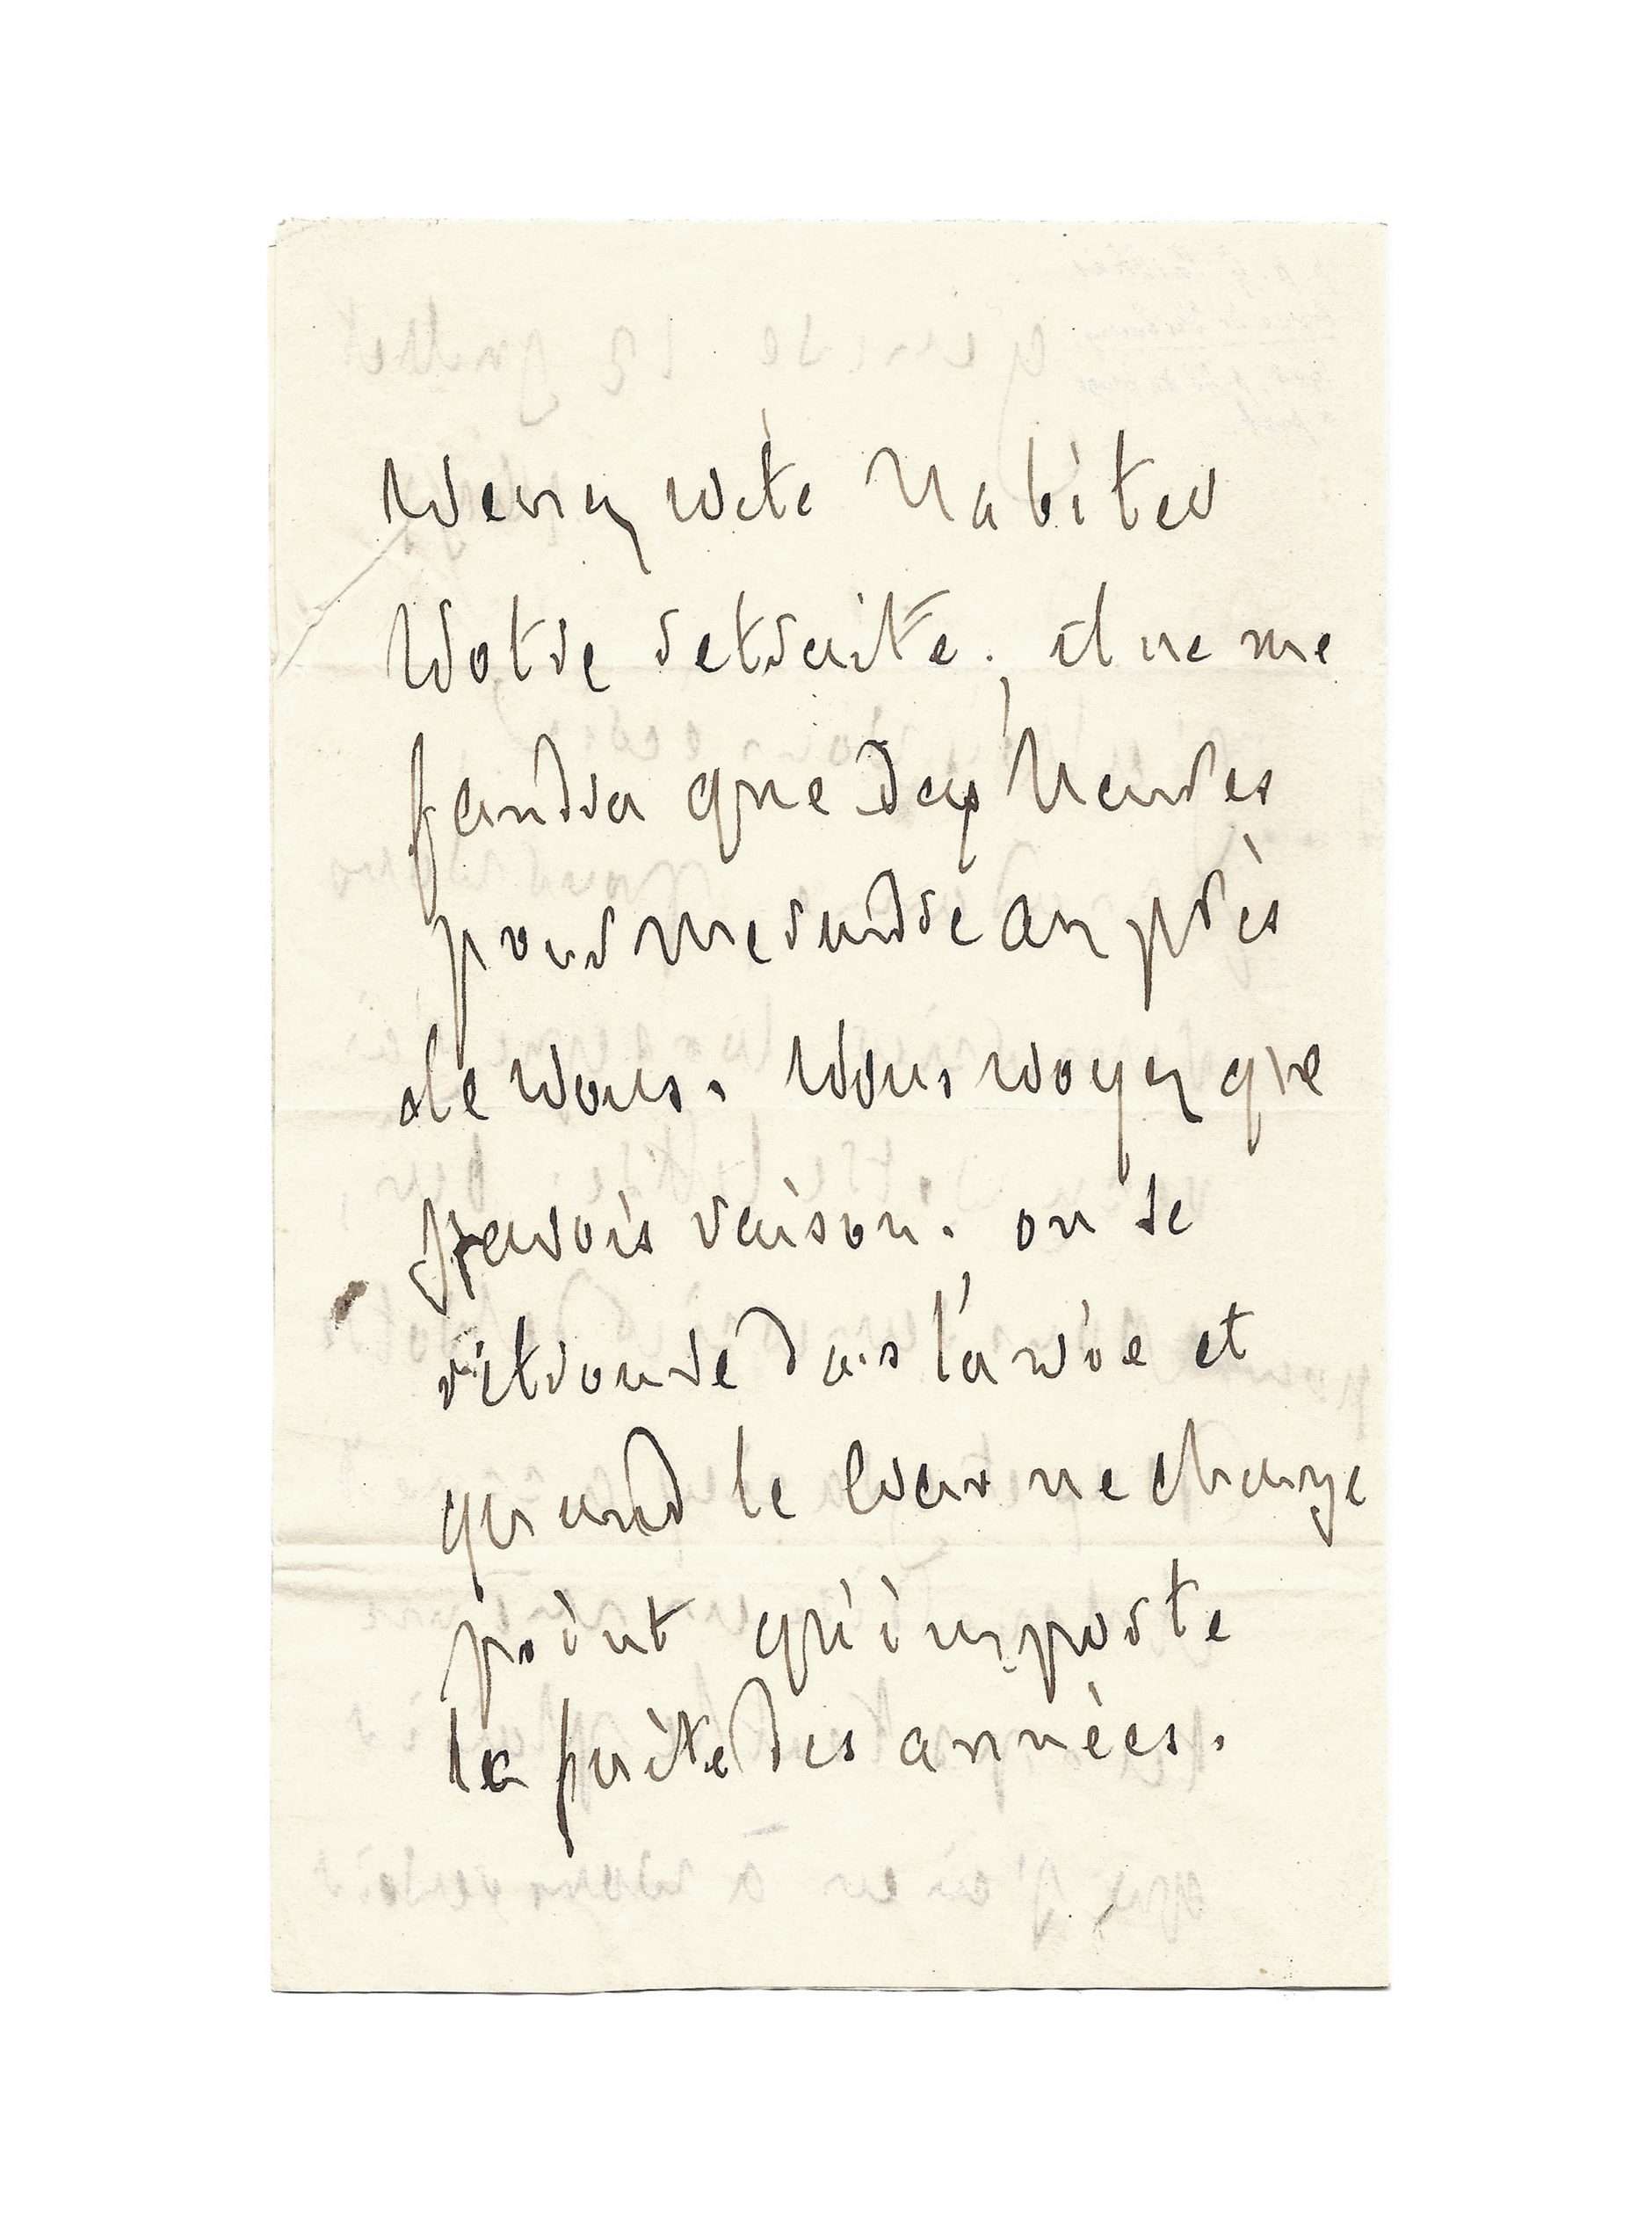 venez vite habiter
votre retraite. il ne me
faudra que dix heures
pour me rendre auprès
de vous. vous voyez que
j'avois raison. on se
retrouve dans la vie et
quand le cœur ne change
point qu'importe
la fuite des années.